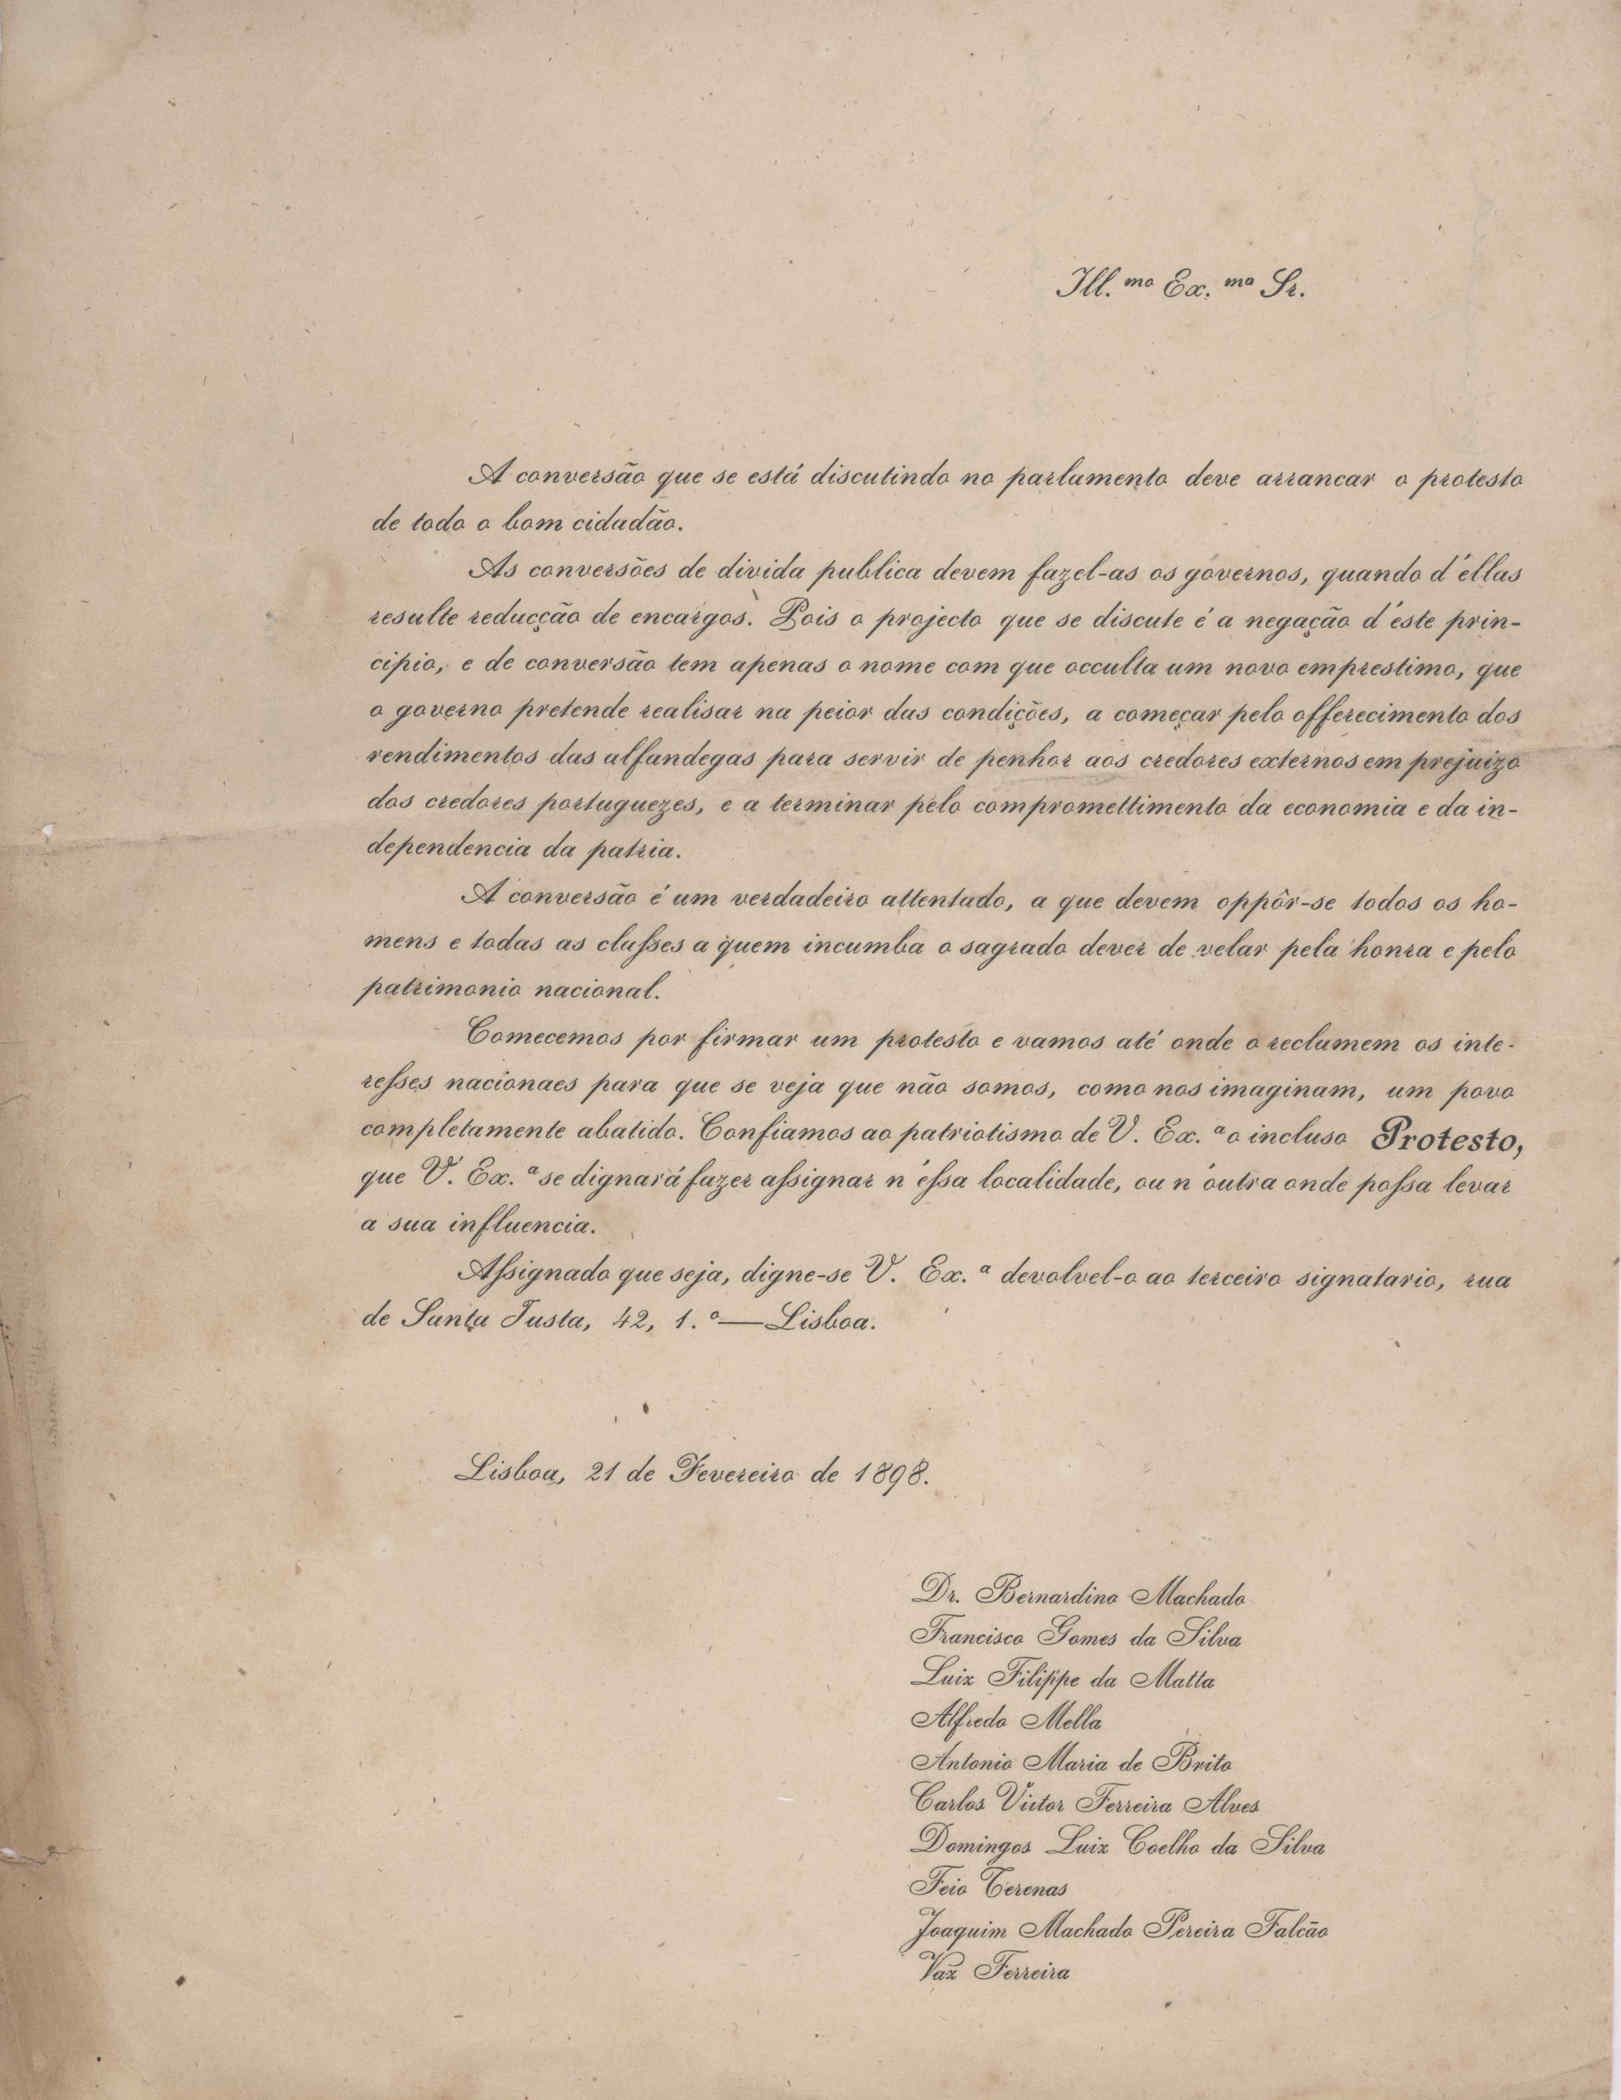 Ill.mo Ex.mo Sr.
A conversão que se está discutindo no parlamento deve arrancar o protesto
de todo o bom cidadão.
As conversões de divida publica devem fazel-as os governos, quando d'éllas
resulte reducção de encargos. Pois o projecto que se discute é a negação d'éste prin-
cipio, e de conversão tem apenas o nome com que occulta um novo emprestimo, que
o governo pretende realisar na peior das condições, a começar pelo offerecimento dos
rendimentos das alfandegas para servir de penhor aos credores externos em prejuizo
dos credores portuguezes, e a terminar pelo compromettimento da economia e da in-
dependencia da patria.
A conversão é um verdadeiro attentado, a que devem oppôr-se todos os ho-
mens e todas as classes a quem incumba o sagrado dever de velar pela honra e pelo
patrimonio nacional.
Comecemos por firmar um protesto e vamos até onde o reclamem os inte-
resses nacionaes para que se veja que não somos, como nos imaginam, um povo
completamente abatido. Confiamos ao patriotismo de V. Ex.ª o incluso Protesto,
que V. Ex.ª se dignará fazer assignar n'éssa localidade, ou n'outra onde possa levar
a sua influencia.
Assignado que seja, digne-se V. Ex.ª devolvel-o ao terceiro signatario, rua
de Santa Justa, 42, 1.º—Lisboa.
Lisboa, 21 de Fevereiro de 1898.
Dr. Bernardino Machado
Francisco Gomes da Silva
Luiz Filippe da Matta
Alfredo Mella
Antonio Maria de Brito
Carlos Victor Ferreira Alves
Domingos Luiz Coelho da Silva
Feio Terenas
Joaquim Machado Pereira Falcão
Vaz Ferreira